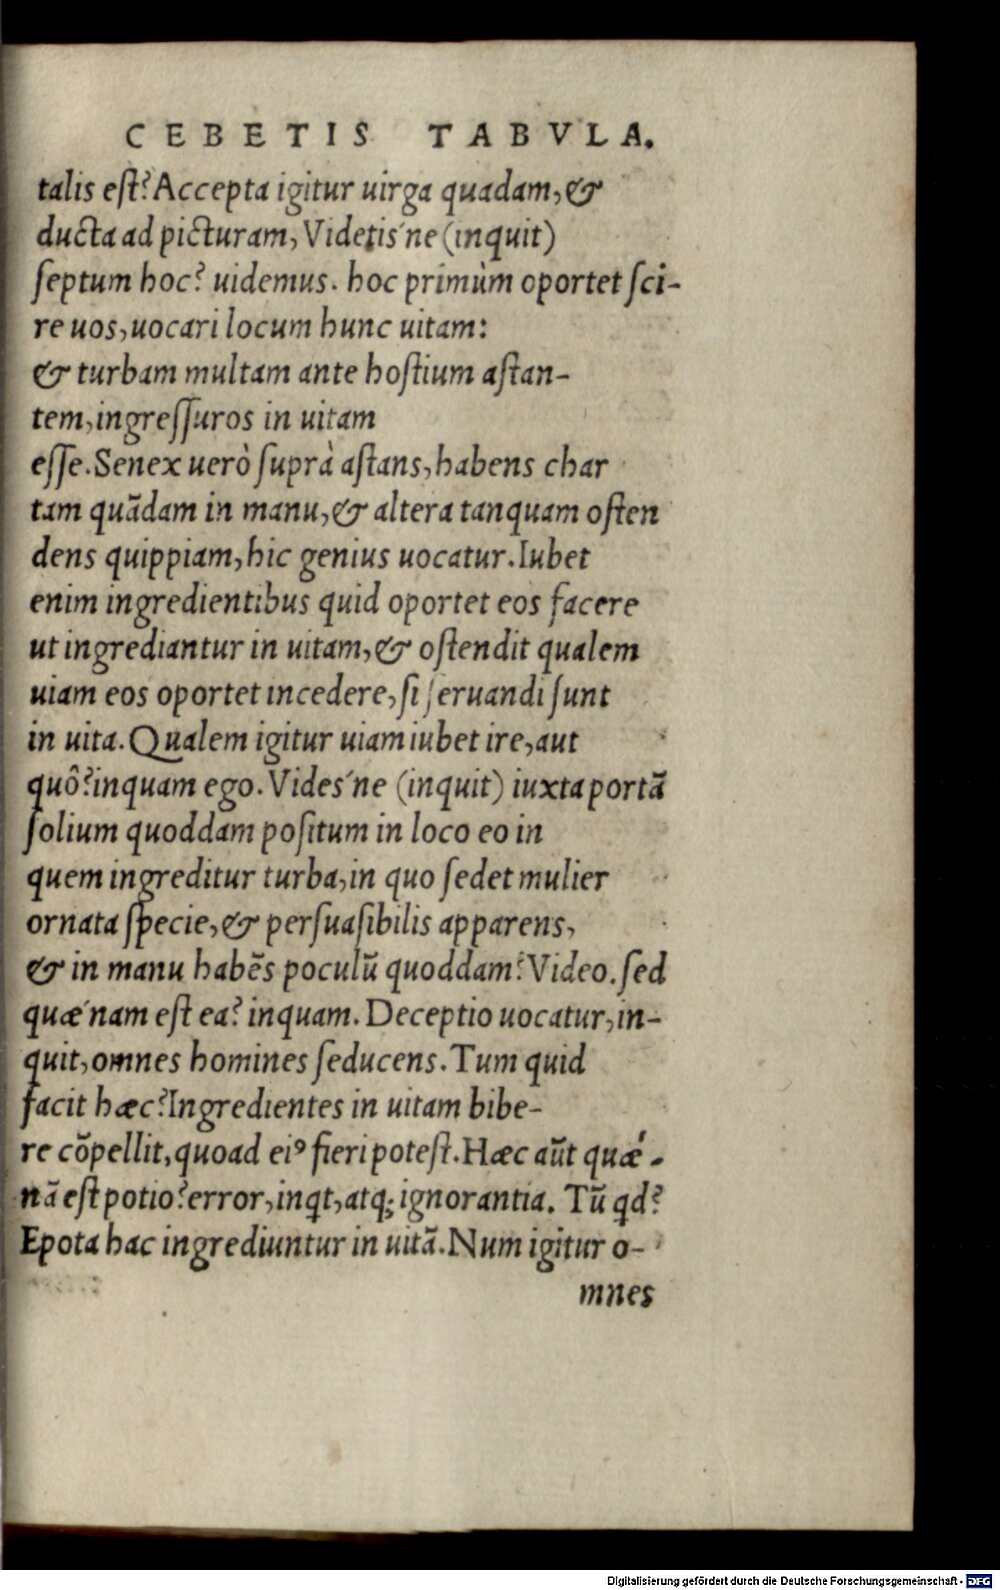 CEBETIS TABVLA.
talis eſt? Accepta igitur uirga quadam, &
ducta ad picturam, Videtis'ne (inquit)
ſeptum hoc? uidemus. hoc primùm oportet ſci-
re uos, uocari locum hunc uitam:
& turbam multam ante hoſtium aſtan-
tem, ingreſſuros in uitam
eſſe. Senex uerò ſuprà aſtans, habens char
tam quãdam in manu, & altera tanquam oſten
dens quippiam, hic genius uocatur. Iubet
enim ingredientibus quid oportet eos facere
ut ingrediantur in uitam, & oſtendit qualem
uiam eos oportet incedere, ſi ſeruandi ſunt
in uita. Qualem igitur uiam iubet ire, aut
quô? inquam ego. Vides'ne (inquit) iuxta portã
ſolium quoddam poſitum in loco eo in
quem ingreditur turba, in quo ſedet mulier
ornata ſpecie, & perſuaſibilis apparens,
& in manu habẽs poculũ quoddam? Video. ſed
quæ'nam eſt ea? inquam. Deceptio uocatur, in-
quit, omnes homines ſeducens. Tum quid
facit hæc? Ingredientes in uitam bibe-
re cõpellit, quoad eiꝰ fieri poteſt. Hæc aũt quæ'-
nã eſt potio? error, inqt, atq; ignorantia. Tũ qd?
Epota hac ingrediuntur in uitã. Num igitur o-
mnes
Digitalisierung gefördert durch die Deutsche Forschungsgemeinschaft - DFG